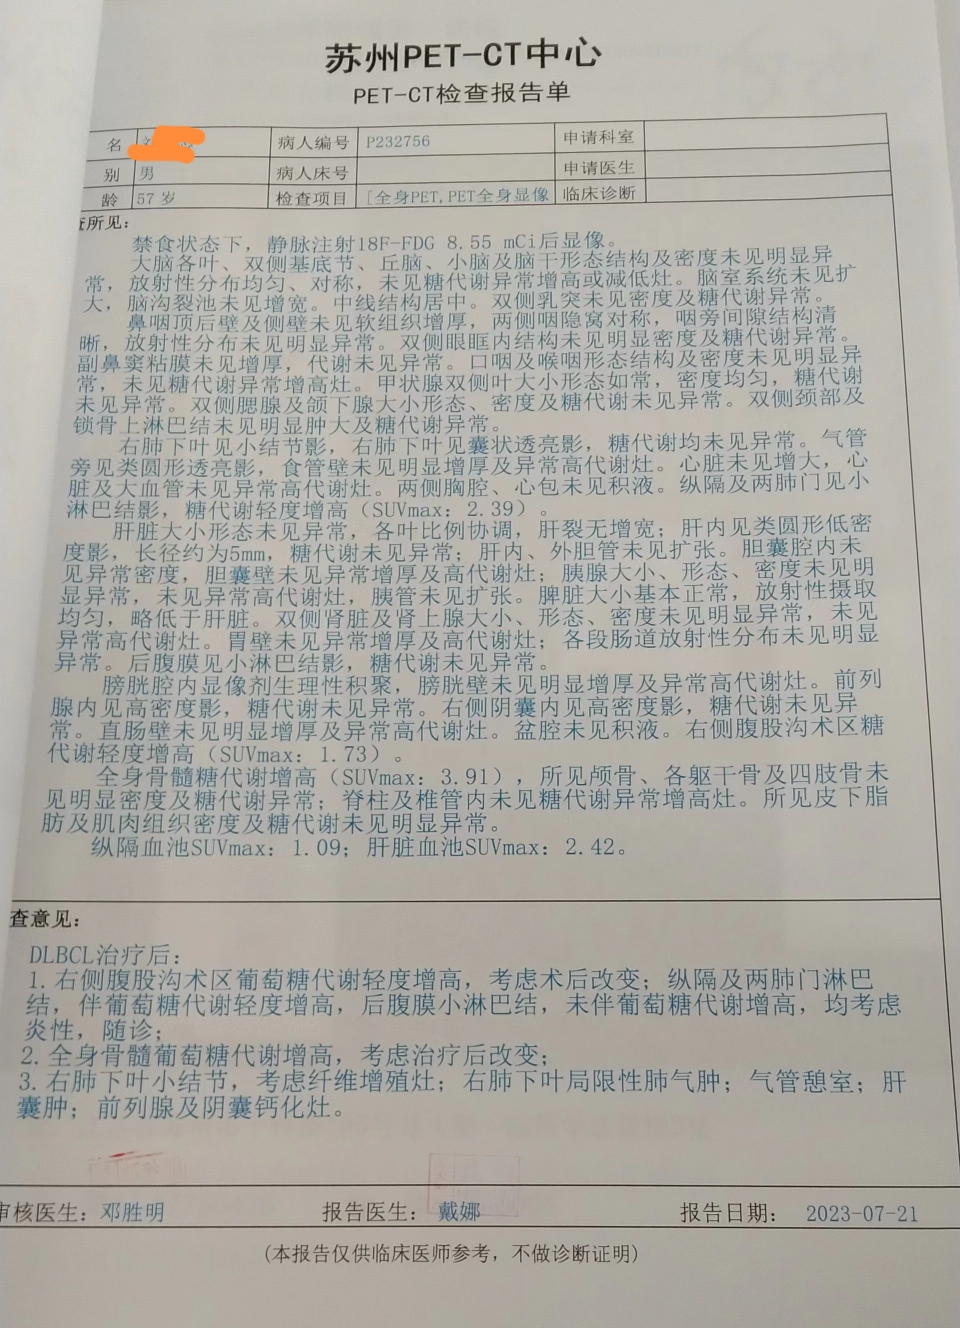 苏州PET-CT中心
PET-CT检查报告单
名 病人编号 P232756 申请科室
别 男 病人床号 申请医生
龄 57 岁 检查项目 [全身PET,PET全身显像 临床诊断
查所见：
禁食状态下，静脉注射18F-FDG 8.55 mCi后显像。
大脑各叶、双侧基底节、丘脑、小脑及脑干形态结构及密度未见明显异
常，放射性分布均匀、对称，未见糖代谢异常增高或减低灶。脑室系统未见扩
大，脑沟裂池未见增宽。中线结构居中。双侧乳突未见密度及糖代谢异常。
鼻咽顶后壁及侧壁未见软组织增厚，两侧咽隐窝对称，咽旁间隙结构清
晰，放射性分布未见明显异常。双侧眼眶内结构未见明显密度及糖代谢异常。
副鼻窦粘膜未见增厚，代谢未见异常。口咽及喉咽形态结构及密度未见明显异
常，未见糖代谢异常增高灶。甲状腺双侧叶大小形态如常，密度均匀，糖代谢
未见异常。双侧腮腺及颌下腺大小形态、密度及糖代谢未见异常。双侧颈部及
锁骨上淋巴结未见明显肿大及糖代谢异常。
右肺下叶见小结节影，右肺下叶见囊状透亮影，糖代谢均未见异常。气管
旁见类圆形透亮影，食管壁未见明显增厚及异常高代谢灶。心脏未见增大，心
脏及大血管未见异常高代谢灶。两侧胸腔、心包未见积液。纵隔及两肺门见小
淋巴结影，糖代谢轻度增高（SUVmax：2.39）。
肝脏大小形态未见异常，各叶比例协调，肝裂无增宽；肝内见类圆形低密
度影，长径约为5mm，糖代谢未见异常；肝内、外胆管未见扩张。胆囊腔内未
见异常密度，胆囊壁未见异常增厚及高代谢灶；胰腺大小、形态、密度未见明
显异常，未见异常高代谢灶，胰管未见扩张。脾脏大小基本正常，放射性摄取
均匀，略低于肝脏。双侧肾脏及肾上腺大小、形态、密度未见明显异常，未见
异常高代谢灶。胃壁未见异常增厚及高代谢灶；各段肠道放射性分布未见明显
异常。后腹膜见小淋巴结影，糖代谢未见异常。
膀胱腔内显像剂生理性积聚，膀胱壁未见明显增厚及异常高代谢灶。前列
腺内见高密度影，糖代谢未见异常。右侧阴囊内见高密度影，糖代谢未见异
常。直肠壁未见明显增厚及异常高代谢灶。盆腔未见积液。右侧腹股沟术区糖
代谢轻度增高（SUVmax：1.73）。
全身骨髓糖代谢增高（SUVmax：3.91），所见颅骨、各躯干骨及四肢骨未
见明显密度及糖代谢异常；脊柱及椎管内未见糖代谢异常增高灶。所见皮下脂
肪及肌肉组织密度及糖代谢未见明显异常。
纵隔血池SUVmax：1.09；肝脏血池SUVmax：2.42。
查意见：
DLBCL治疗后：
1. 右侧腹股沟术区葡萄糖代谢轻度增高，考虑术后改变；纵隔及两肺门淋巴
结，伴葡萄糖代谢轻度增高，后腹膜小淋巴结，未伴葡萄糖代谢增高，均考虑
炎性，随诊；
2. 全身骨髓葡萄糖代谢增高，考虑治疗后改变；
3. 右肺下叶小结节，考虑纤维增殖灶；右肺下叶局限性肺气肿；气管憩室；肝
囊肿；前列腺及阴囊钙化灶。
审核医生：邓胜明 报告医生：戴娜 报告日期：2023-07-21
(本报告仅供临床医师参考，不做诊断证明)